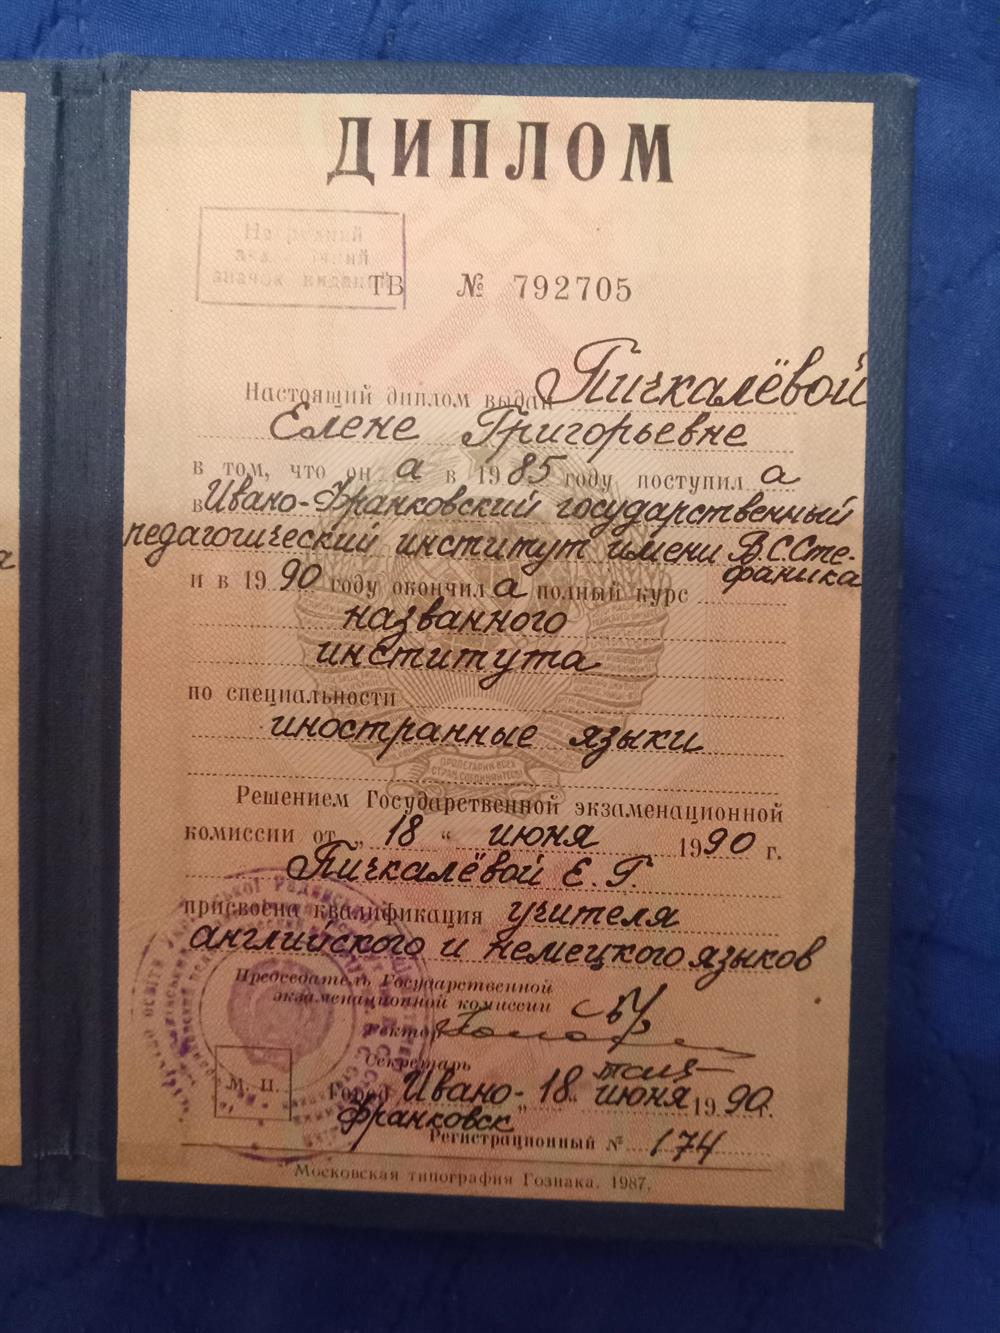 ДИПЛОМ
На руський
значок виданий
ТВ № 792705
Настоящий диплом выдан Пичкалёвой
Елене Григорьевне
в том, что он а в 1985 году поступил а
в Ивано-Франковский государственный
педагогический институт имени В.С.Сте-
фаника
и в 1990 году окончил а полный курс
названного
института
по специальности
иностранные языки
ПРОЛЕТАРИИ ВСЕХ
СТРАН, СОЕДИНЯЙТЕСЬ!
Решением Государственной экзаменационной
комиссии от „ 18 “ июня 1990 г.
Пичкалёвой Е. Г.
присвоена квалификация учителя
английского и немецкого языков
Председатель Государственной
экзаменационной комиссии
Ректор
Секретарь
М. П.
Город Ивано- „ 18 “ июня 1990 г.
Франковск
Регистрационный № 174
Московская типография Гознака. 1987.